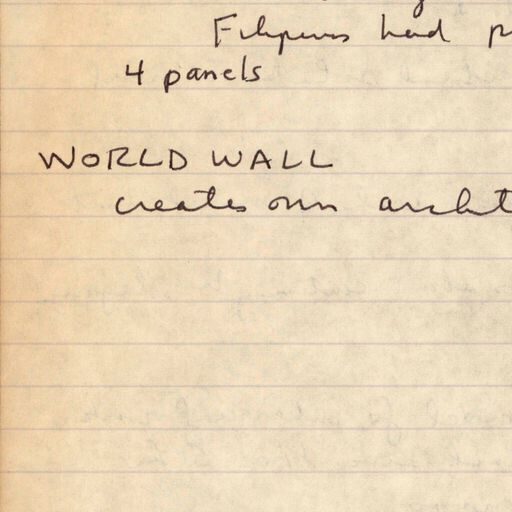 Filipinos had
4 panels
WORLD WALL
creates own